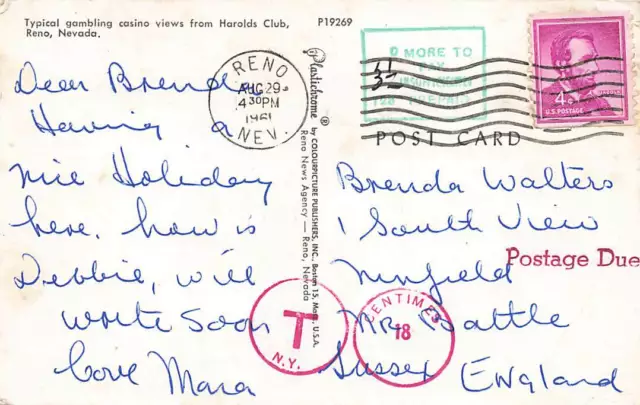 Typical gambling casino views from Harolds Club,
Reno, Nevada.
P19269
RENO
AUG 29
4 30 PM
1961
NEV.
MORE TO
PAY
4¢
U.S. POSTAGE
POST CARD
Plastichrome ® by COLOURPICTURE PUBLISHERS, INC., Boston 15, Mass., U.S.A.
Reno News Agency — Reno, Nevada
Dear Brenda
Having a
nice Holiday
here. how is
Debbie, will
write soon
love Mara
Brenda Walters
1 South View
Postage Due
Ninfield
NR. Battle
Sussex ENGLAND
T
N.Y.
CENTIMES
18